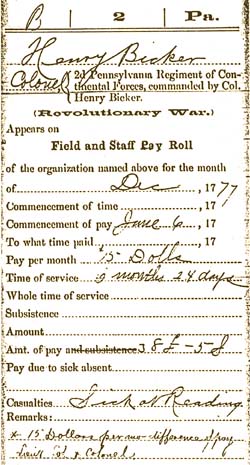 B | 2 | Pa.
Henry Bicker
Colonel { 2d Pennsylvania Regiment of Con-
tinental Forces, commanded by Col.
Henry Bicker.
(Revolutionary War.)
Appears on
Field and Staff Pay Roll
of the organization named above for the month
of Dec, 1777
Commencement of time , 17
Commencement of pay June 6, 17
To what time paid , 17
Pay per month 15 Dolls
Time of service 9 months 24 days
Whole time of service
Subsistence
Amount
Amt. of pay and subsistence 38£-5s
Pay due to sick absent
Casualties Sick at Reading
Remarks:
* 15 Dollars per mo- difference of pay
Lieut Col & Colonel